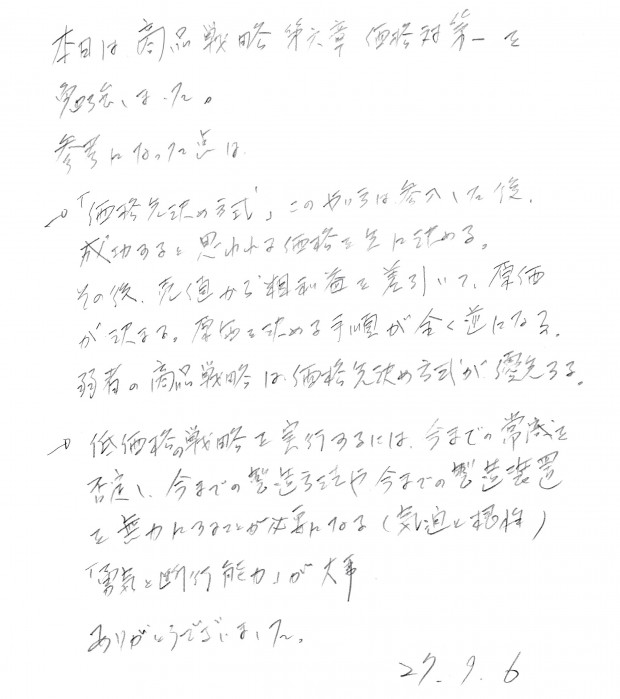 本日は商品戦略第六章価格対策一を
勉強しました。
参考になった点は
→「価格先決め方式」このやり方は参入した後、
成功すると思われる価格を先に決める。
その後、売値から粗利益を差引いて、原価
が決まる。原価を決める手順が全く逆になる。
弱者の商品戦略は価格先決め方式が優先する。
→低価格の戦略を実行するには、今までの常識を
否定し、今までの製造方法や今までの製造装置
を無力にすることが必要になる(気迫と根性)
「勇気と断行能力」が大事
ありがとうございました。
27.9.6